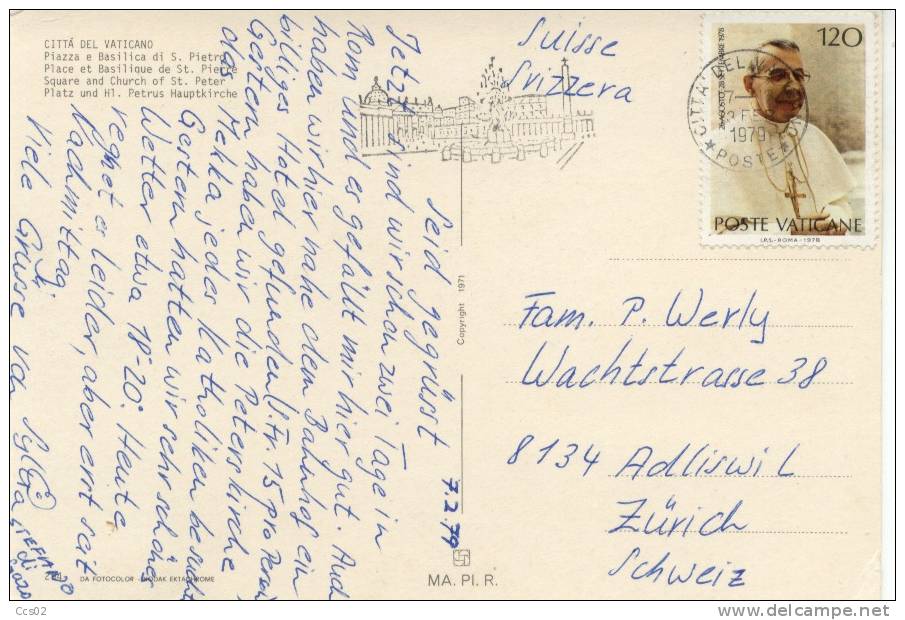 CITTÀ DEL VATICANO
Piazza e Basilica di S. Pietro
Place et Basilique de St. Pierre
Square and Church of St. Peter
Platz und Hl. Petrus Hauptkirche
Suisse
Svizzera
26 AGOSTO 28 SETTEMBRE 1978
120
CITTA' DEL
1979
POSTE
POSTE VATICANE
I.P.S.-ROMA-1978
7.2.79
Seid gegrüsst
Jetzt sind wir schon zwei Tage in
Rom und es gefällt mir hier gut. Auch
haben wir hier nahe dem Bahnhof ein
billiges Hotel gefunden (Fr. 15 pro Person
Gestern haben wir die Peterskirche
das Mekka jedes Katholiken besucht
Gestern hatten wir sehr schönes
Wetter etwa 18-20° Heute
regnet er leider, aber erst seit
Nachmittag
Viele Grüsse von
Fam. P. Werly
Wachtstrasse 38
8134 Adliswil
Zürich
Schweiz
Copyright 1971
MA. PI. R.
DA FOTOCOLOR - KODAK EKTACHROME
Ccs02
www.delcampe.net